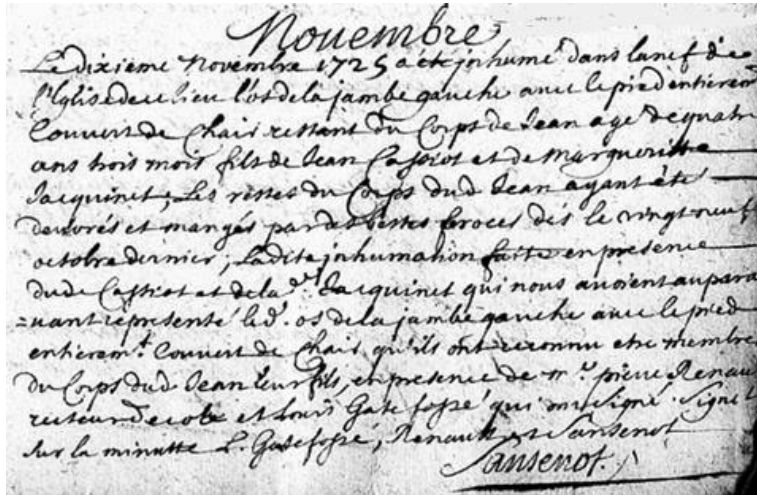 Novembre
Le dixieme Novembre 1725 a eté inhumé dans la nef de
l'Eglise de ce lieu l'os de la jambe gauche avec le pied entierem
Couvert de Chair restant du Corps de Jean agé de quatr
ans trois mois fils de Jean Cassiot et de Margueritte
Jacquinet, Les restes du Corps dud Jean ayant eté
devorés et mangés par des bestes feroces dés le vingt neuf
octobre dernier, Ladite inhumation faite en presence
dud Cassiot et de la d. Jacquinet qui nous avoient aupara
=vant representé led. os de la jambe gauche avec le pied
entierem.t Couvert de Chair, qu'ils ont reconnu etre membre
du Corps dud Jean leur fils, en presence de m.e pierre Renau
recteur d'ecole et Louis Gatefossé qui ont signé. Signé
sur la minutte L. Gatefossé, Renault et Sansenot
Sansenot.